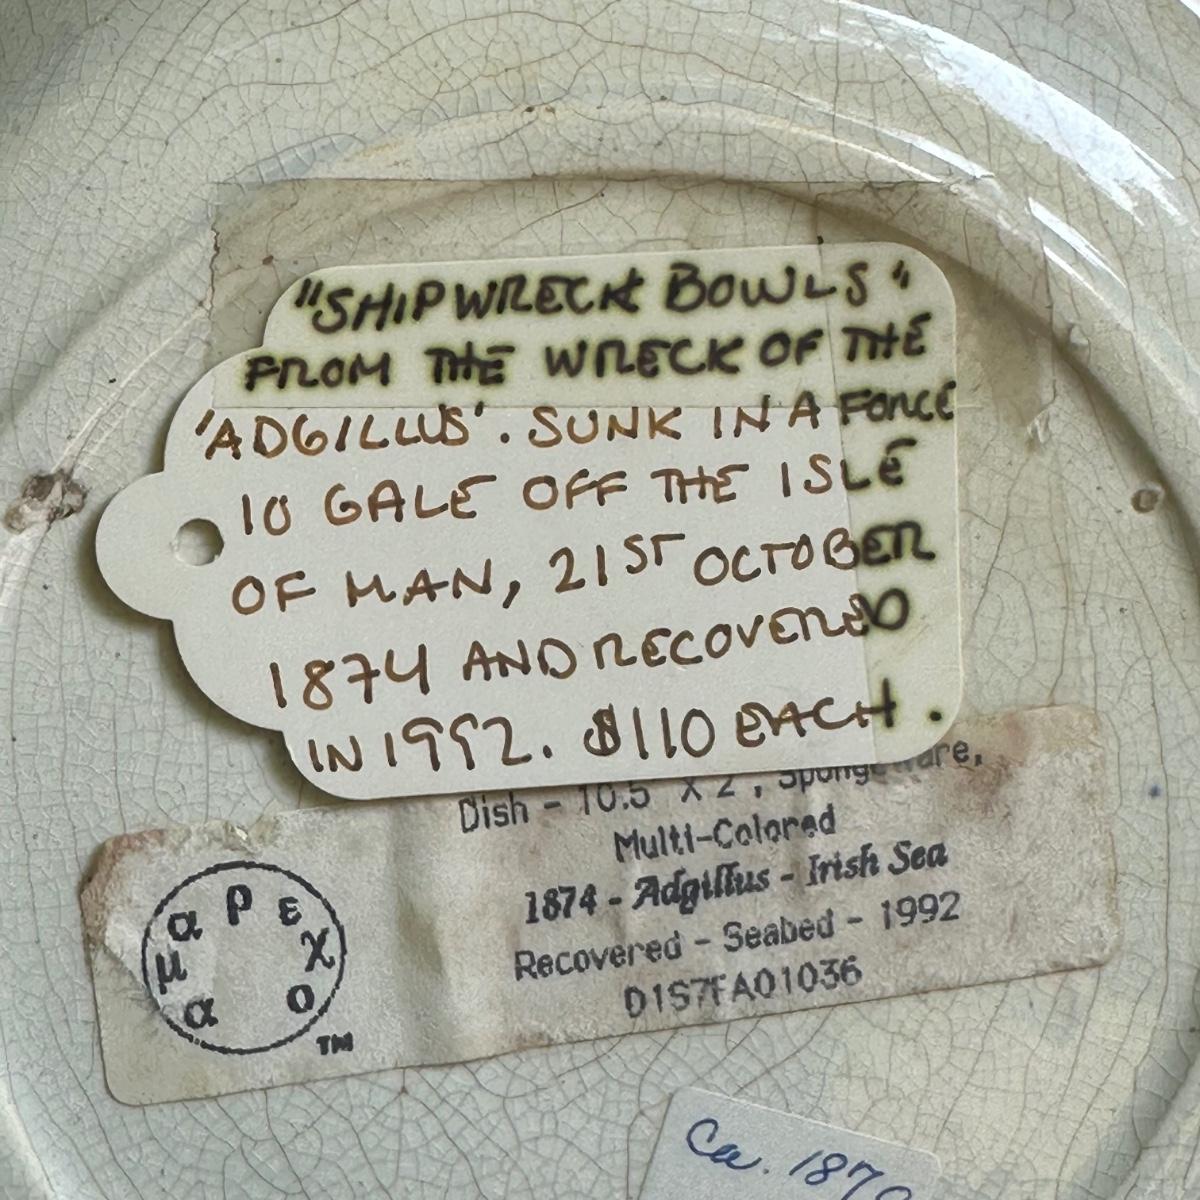 "SHIPWRECK BOWLS"
FROM THE WRECK OF THE
'ADGILLUS'. SUNK IN A FORCE
10 GALE OFF THE ISLE
OF MAN, 21ST OCTOBER
1874 AND RECOVERED
IN 1992. $110 EACH.
Dish - 10.5 X 2", Spongeware,
Multi-Colored
1874 - Adgillus - Irish Sea
Recovered - Seabed - 1992
D1S7FA01036
α μ α ρ ε χ ο
TM
Ca. 1870